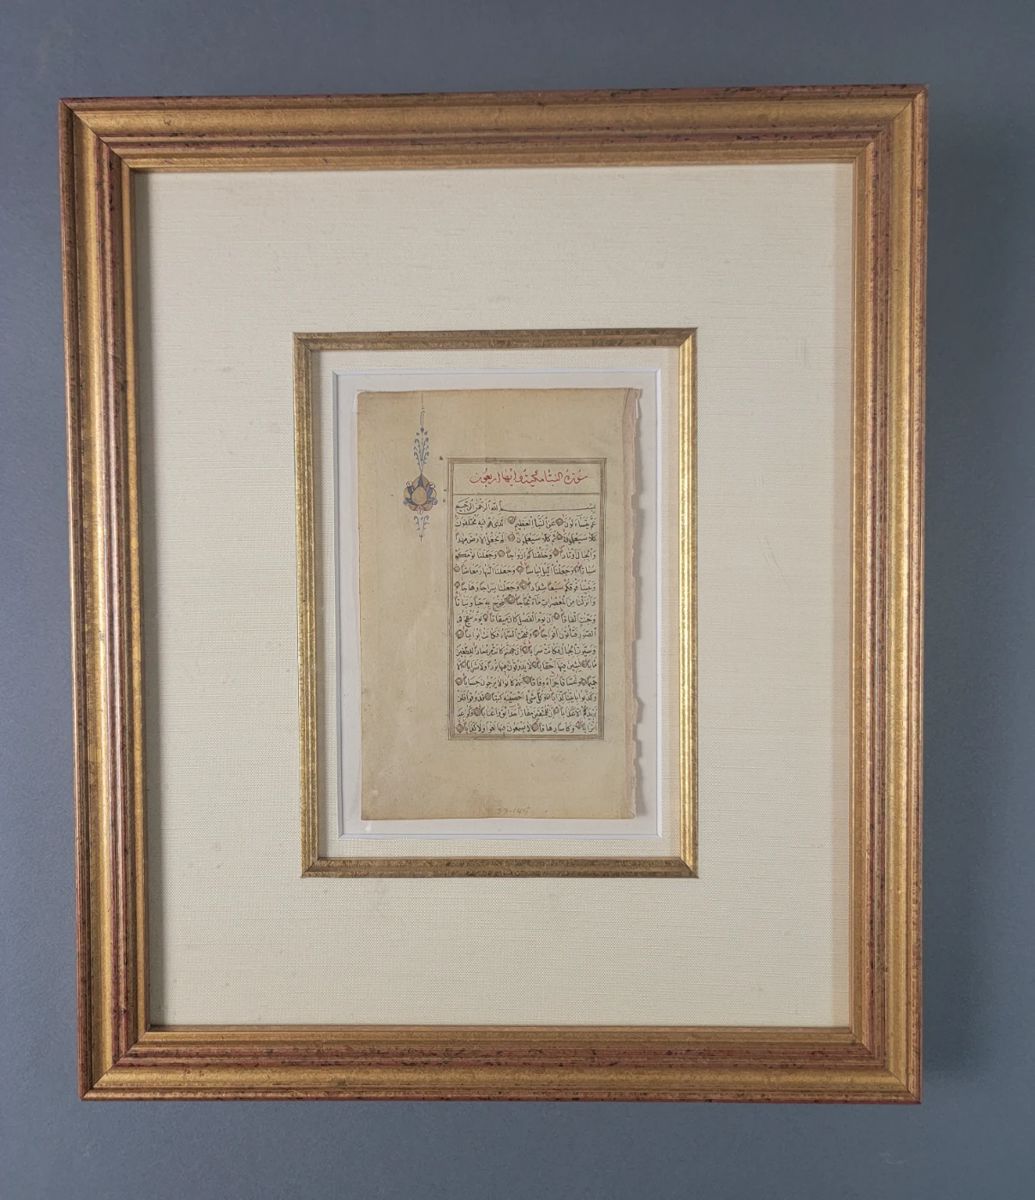 سُورَةُ النَّبَأ مَكِّيَّة وَآيُهَا اَرْبَعُونَ
بِسْمِ اللهِ الرَّحْمٰنِ الرَّحِيمِ
عَمَّ يَتَسَآءَلُونَ عَنِ النَّبَأِ الْعَظِيمِ اَلَّذِى هُمْ فِيهِ مُخْتَلِفُونَ
كَلَّا سَيَعْلَمُونَ ثُمَّ كَلَّا سَيَعْلَمُونَ اَلَمْ نَجْعَلِ الْاَرْضَ مِهَادًا
وَالْجِبَالَ اَوْتَادًا وَخَلَقْنَاكُمْ اَزْوَاجًا وَجَعَلْنَا نَوْمَكُمْ
سُبَاتًا وَجَعَلْنَا الَّيْلَ لِبَاسًا وَجَعَلْنَا النَّهَارَ مَعَاشًا
وَبَنَيْنَا فَوْقَكُمْ سَبْعًا شِدَادًا وَجَعَلْنَا سِرَاجًا وَهَّاجًا
وَاَنْزَلْنَا مِنَ الْمُعْصِرَاتِ مَآءً ثَجَّاجًا لِنُخْرِجَ بِهِ حَبًّا وَنَبَاتًا
وَجَنَّاتٍ اَلْفَافًا اِنَّ يَوْمَ الْفَصْلِ كَانَ مِيقَاتًا يَوْمَ يُنْفَخُ فِى
الصُّورِ فَتَأْتُونَ اَفْوَاجًا وَفُتِحَتِ السَّمَآءُ فَكَانَتْ اَبْوَابًا
وَسُيِّرَتِ الْجِبَالُ فَكَانَتْ سَرَابًا اِنَّ جَهَنَّمَ كَانَتْ مِرْصَادًا لِلطَّاغِينَ
مَاٰبًا لَابِثِينَ فِيهَا اَحْقَابًا لَا يَذُوقُونَ فِيهَا بَرْدًا وَلَا شَرَابًا اِلَّا
حَمِيمًا وَغَسَّاقًا جَزَآءً وِفَاقًا اِنَّهُمْ كَانُوا لَا يَرْجُونَ حِسَابًا
وَكَذَّبُوا بِاٰيَاتِنَا كِذَّابًا وَكُلَّ شَىْءٍ اَحْصَيْنَاهُ كِتَابًا فَذُوقُوا فَلَنْ
نَزِيدَكُمْ اِلَّا عَذَابًا اِنَّ لِلْمُتَّقِينَ مَفَازًا حَدَآئِقَ وَاَعْنَابًا وَكَوَاعِبَ
اَتْرَابًا وَكَأْسًا دِهَاقًا لَا يَسْمَعُونَ فِيهَا لَغْوًا وَلَا كِذَّابًا